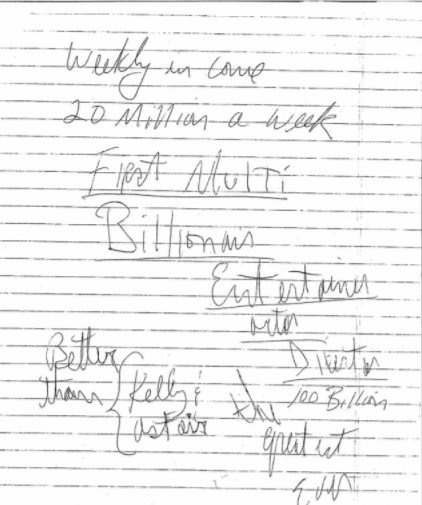 Weekly in come
20 Million a week
First Multi
Billionair
Entertainer
actor
Director
100 Billion
Better
than
Kelly &
astair
the
greatest